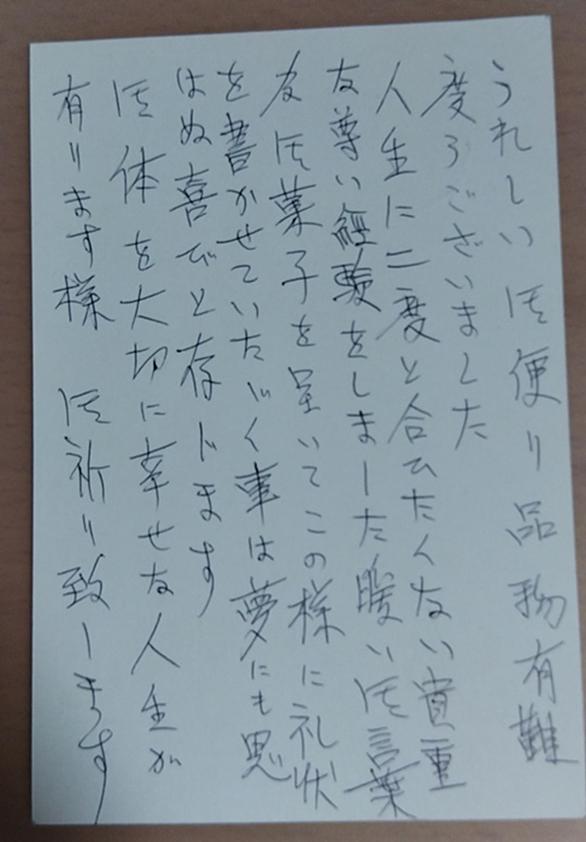 うれしい御便り品物有難
度うございました
人生に二度と合ひたくない貴重
な尊い経験をしました暖い御言葉
友御菓子を呈いてこの様に礼状
を書かせていたゞく事は夢にも思
はぬ喜びと存じます
御体を大切に幸せな人生が
有ります様 御祈り致します